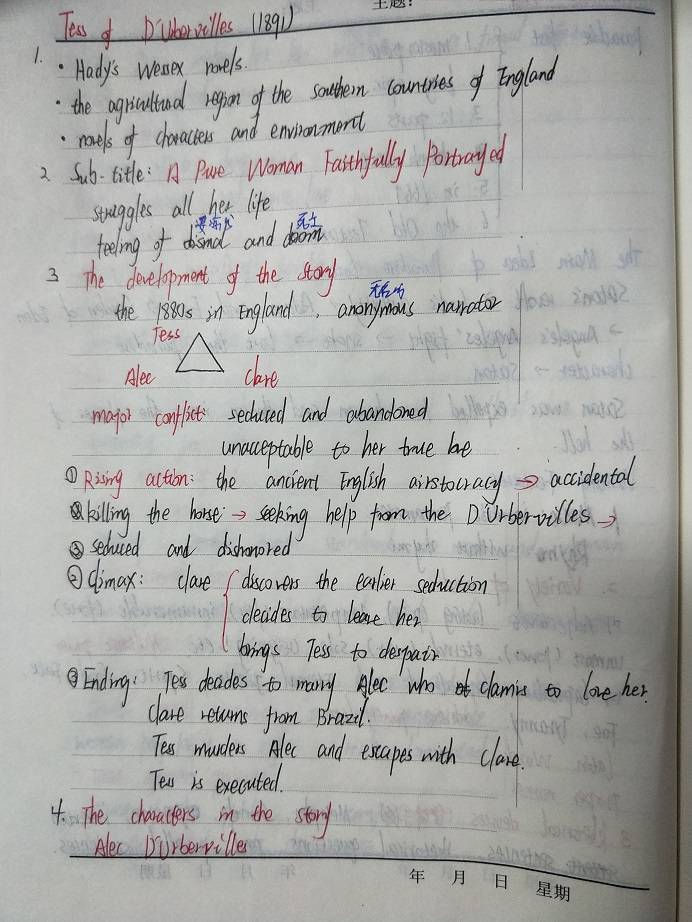 主题:
Tess of D'Urbervilles (1891)
1. · Hady's Wessex novels.
· the agricultural region of the southern countries of England
· novels of characters and environment
2 Sub-title: A Pure Woman Faithfully Portrayed
struggles all her life
feeling of dismal and doom
3 The development of the story
the 1880s in England, anonymous narrator
Tess
Alec Clare
major conflict: seduced and abandoned
unacceptable to her true be
① Rising action: the ancient English airstocracy → accidental
killing the horse → seeking help from the D'Urbervilles →
seduced and dishonored
② Climax: Clare { discovers the earlier seduction
decides to leave her
brings Tess to despair
③ Ending: Tess decides to marry Alec who clamis to love her.
Clare returns from Brazil.
Tess murders Alec and escapes with Clare.
Tess is executed.
4. The characters in the story
Alec D'Urbervilles
年 月 日 星期